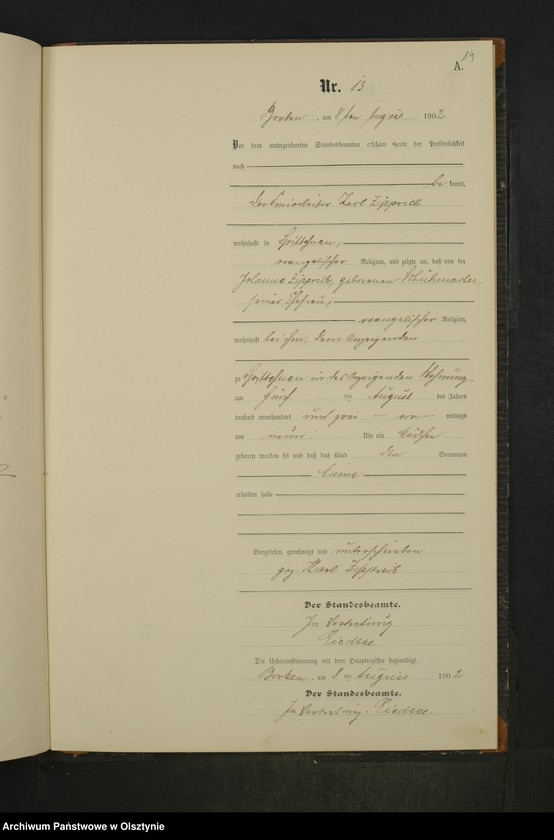 14
A.
Nr. 13
Borken, am 8ten August 1902
Vor dem unterzeichneten Standesbeamten erschien heute, der Persönlichkeit
nach
be kannt,
der Karl Zipprick
wohnhaft in
evangelischer Religion, und zeigte an, daß von der
Zipprick, geborenen
seiner Ehefrau,
evangelischer Religion,
wohnhaft bei ihm, dem Anzeigenden
zu in des Anzeigenden Wohnung
am fünf ten August des Jahres
tausend neunhundert und zwei vor mittags
um neun Uhr ein Mädchen
geboren worden sei und daß das Kind den Vornamen
erhalten habe
Vorgelesen, genehmigt und unterschrieben
gez. Karl Zipprick
Der Standesbeamte.
In Vertretung
Die Uebereinstimmung mit dem Hauptregister beglaubigt.
Borken, am 8ten August 1902
Der Standesbeamte.
In Vertretung.
Archiwum Państwowe w Olsztynie